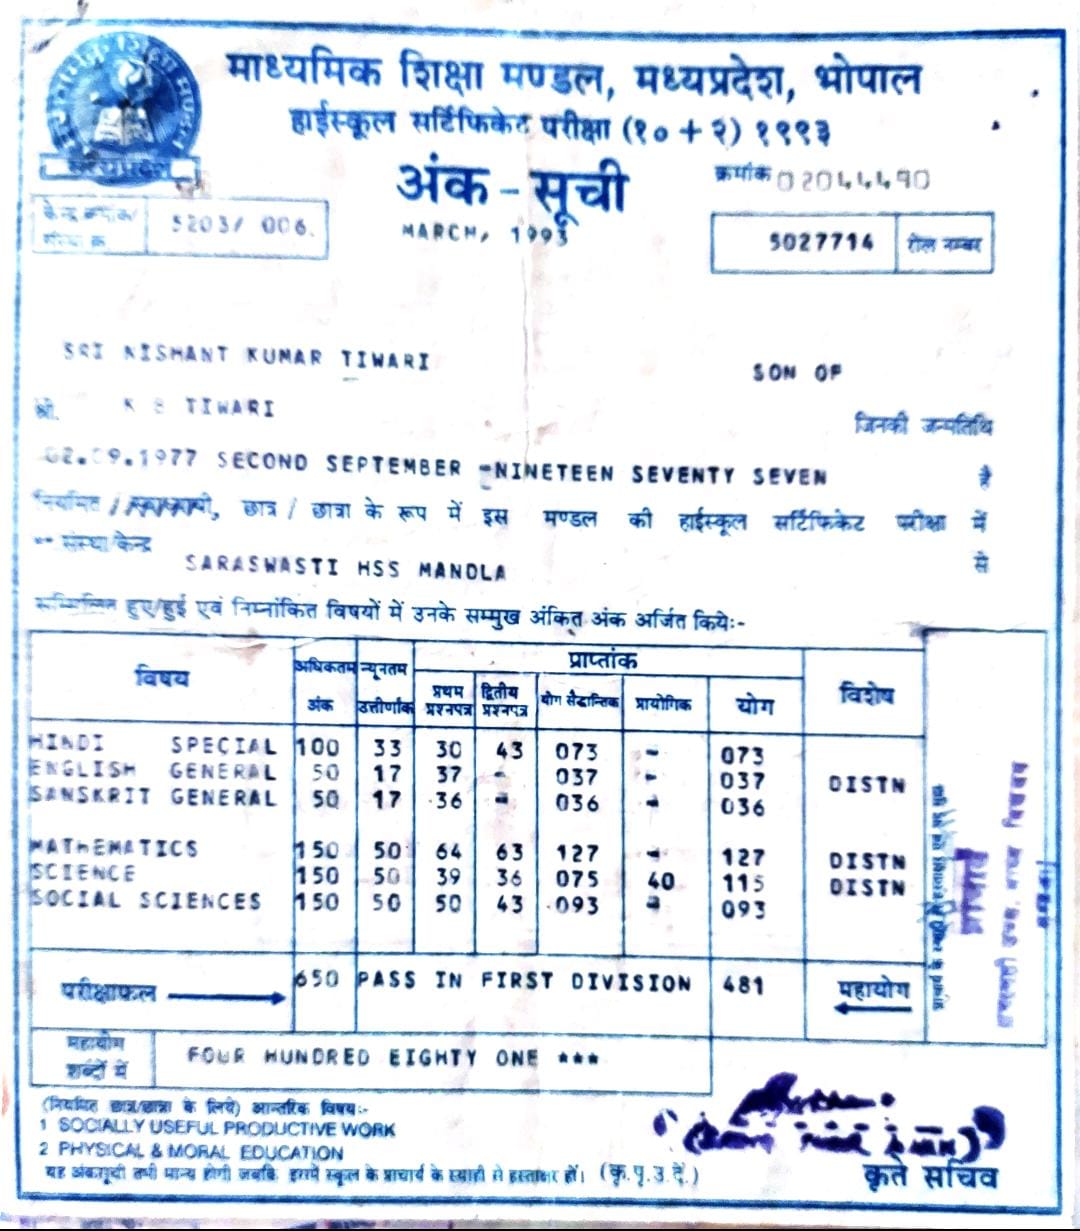 माध्यमिक शिक्षा मण्डल, मध्यप्रदेश, भोपाल
हाईस्कूल सर्टिफिकेट परीक्षा (१० + २) १९९३
अंक - सूची
क्रमांक 02044490
MARCH, 1993
केन्द्र क्रमांक/ 5203/ 006.
संस्था क्र.
5027714 रोल नम्बर
SRI NISHANT KUMAR TIWARI SON OF
श्री. K S TIWARI जिनकी जन्मतिथि
02.09.1977 SECOND SEPTEMBER -NINETEEN SEVENTY SEVEN है
नियमित / स्वाध्यायी, छात्र / छात्रा के रूप में इस मण्डल की हाईस्कूल सर्टिफिकेट परीक्षा में
** संस्था/केन्द्र SARASWASTI HSS MANDLA से
सम्मिलित हुए/हुई एवं निम्नांकित विषयों में उनके सम्मुख अंकित अंक अर्जित किये:-
विषय अधिकतम अंक न्यूनतम उत्तीर्णांक प्राप्तांक विशेष
प्रथम प्रश्नपत्र द्वितीय प्रश्नपत्र योग सैद्धान्तिक प्रायोगिक योग
HINDI SPECIAL 100 33 30 43 073 - 073
ENGLISH GENERAL 50 17 37 - 037 - 037 DISTN
SANSKRIT GENERAL 50 17 36 - 036 - 036
MATHEMATICS 150 50 64 63 127 - 127 DISTN
SCIENCE 150 50 39 36 075 40 115 DISTN
SOCIAL SCIENCES 150 50 50 43 093 - 093
परीक्षाफल 650 PASS IN FIRST DIVISION 481 महायोग
महायोग शब्दों में FOUR HUNDRED EIGHTY ONE ***
(नियमित छात्र/छात्रा के लिये) आन्तरिक विषय:-
1 SOCIALLY USEFUL PRODUCTIVE WORK
2 PHYSICAL & MORAL EDUCATION
यह अंकसूची तभी मान्य होगी जबकि इसमें स्कूल के प्राचार्य के स्याही से हस्ताक्षर हों। (कृ.पृ.उ.दें.)
कृते सचिव
प्राचार्य के स्याही से हस्ताक्षर एवं पद मुद्रा
प्राचार्य